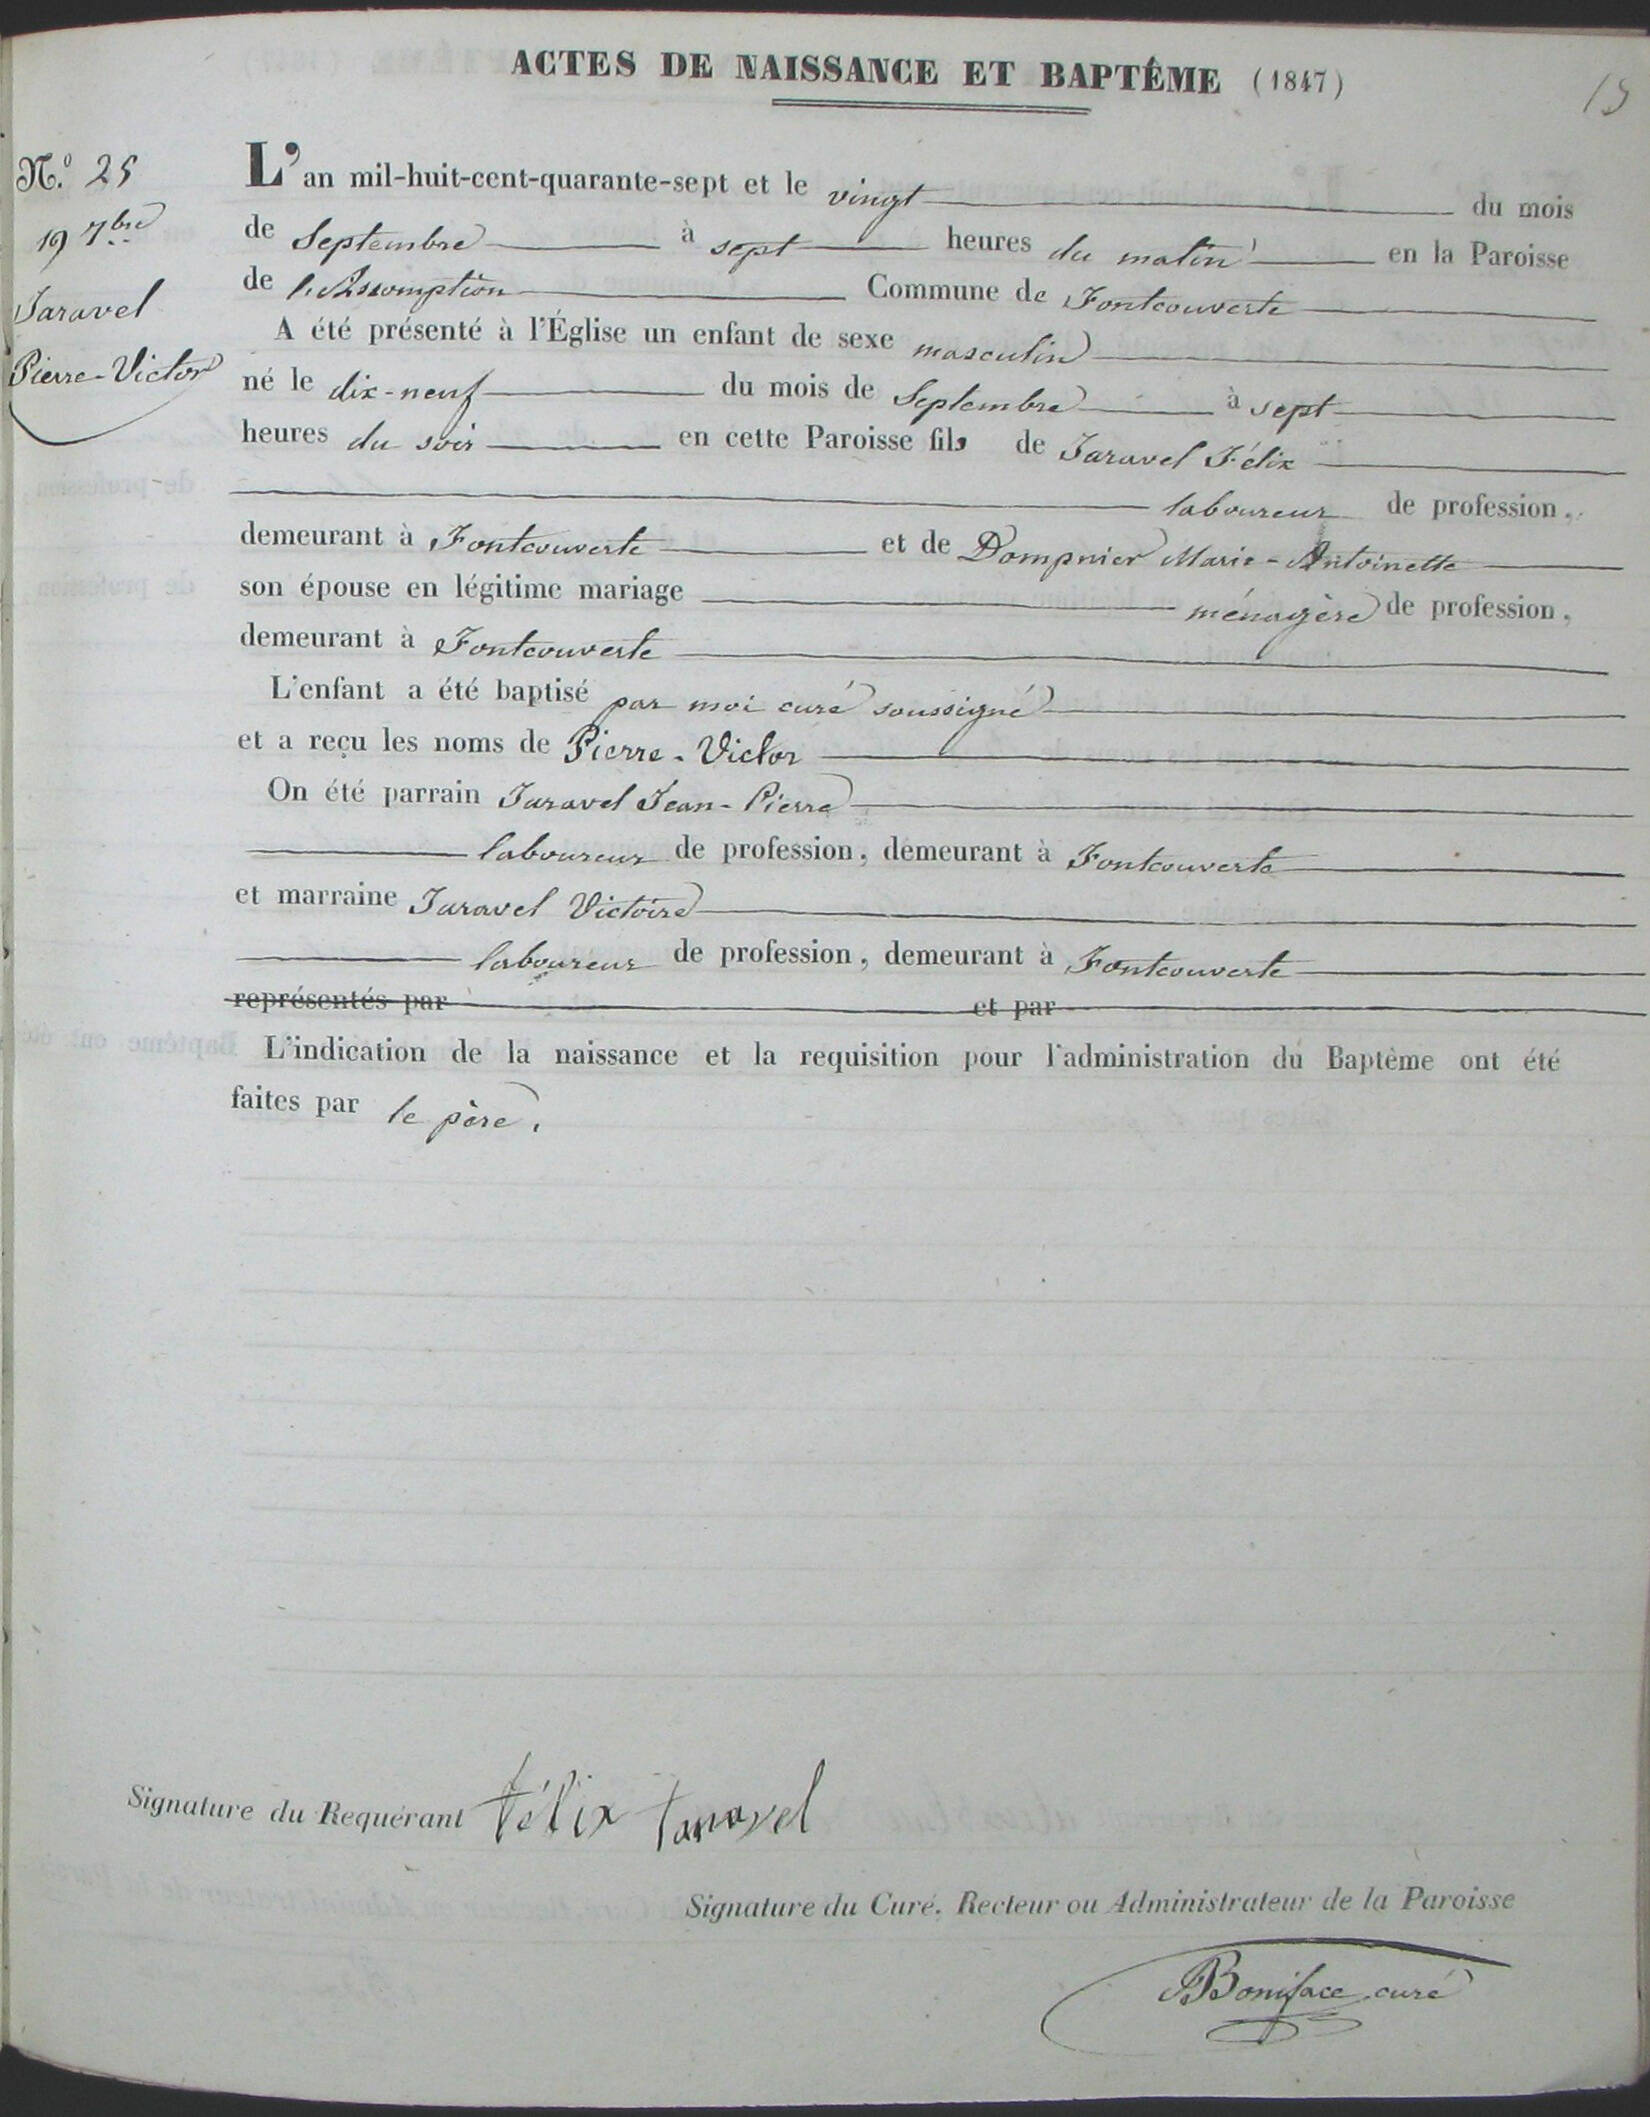 ACTES DE NAISSANCE ET BAPTÊME (1847)
15
N.º 25
19 7bre
Taravel
Pierre-Victor
L'an mil-huit-cent-quarante-sept et le vingt du mois
de Septembre à sept heures du matin en la Paroisse
de l'Assomption Commune de Fontcouverte
A été présenté à l'Église un enfant de sexe masculin
né le dix-neuf du mois de Septembre à sept
heures du soir en cette Paroisse fils de Taravel Félix
laboureur de profession,
demeurant à Fontcouverte et de Dompnier Marie-Antoinette
son épouse en légitime mariage ménagère de profession,
demeurant à Fontcouverte
L'enfant a été baptisé par moi curé soussigné
et a reçu les noms de Pierre-Victor
On été parrain Taravel Jean-Pierre
laboureur de profession, demeurant à Fontcouverte
et marraine Taravel Victoire
laboureur de profession, demeurant à Fontcouverte
représentés par et par
L'indication de la naissance et la requisition pour l'administration du Baptème ont été
faites par le père.
Signature du Requérant Félix taravel
Signature du Curé, Recteur ou Administrateur de la Paroisse
Boniface curé